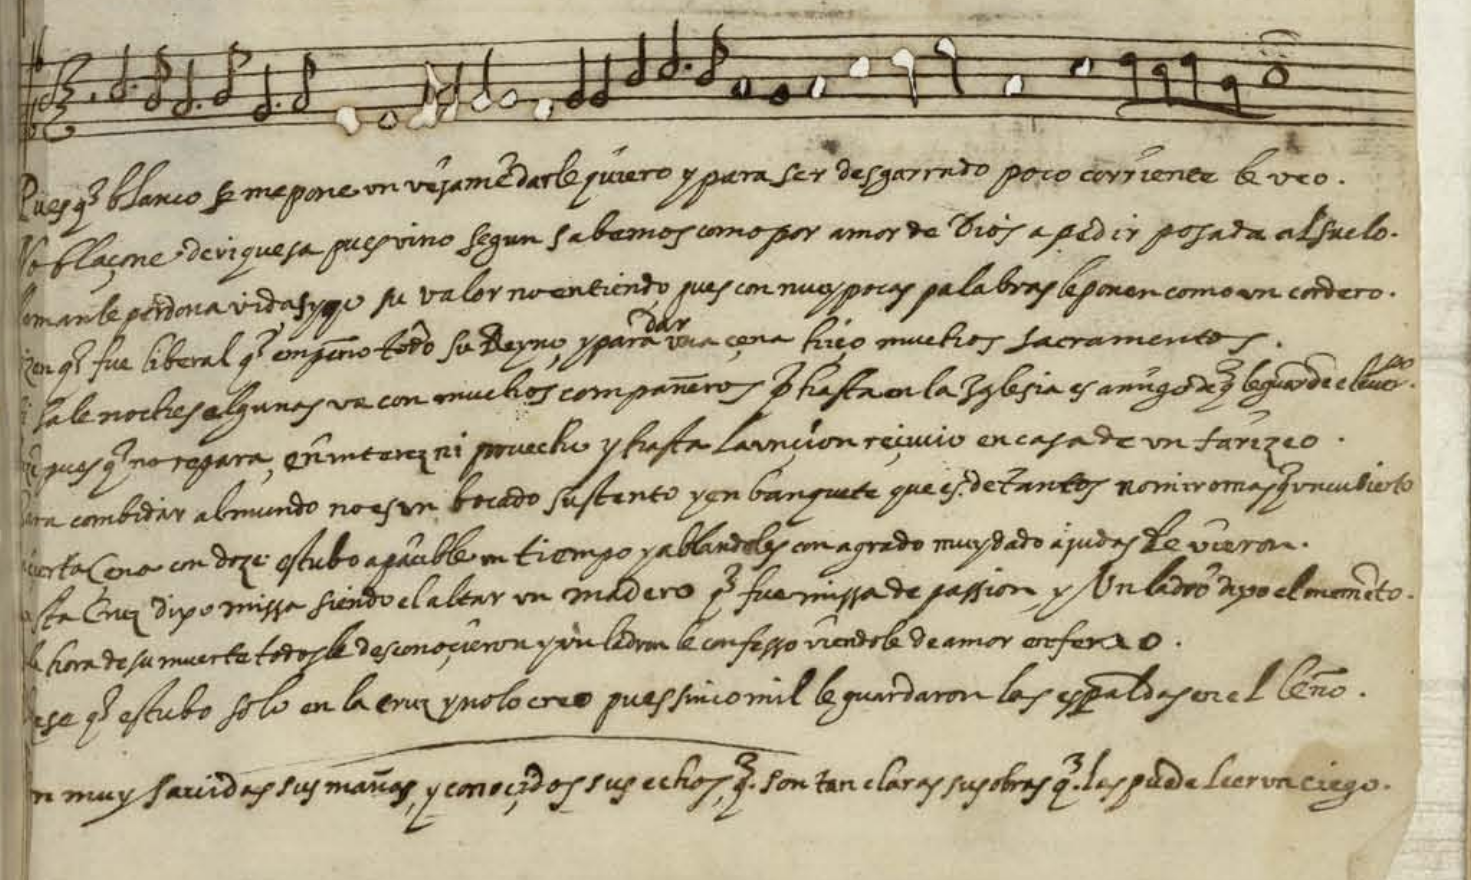 Pues q̃ blanco se me pone un vejamẽ darle quiero y para ser desgarrado poco corriente le veo.
No blaçone de riquesa pues vino segun sabemos como por amor de Dios a pedir posada al suelo.
llamanle perdona vidas y yo su valor no entiendo pues con muy pocas palabras le ponen como un cordero.
izen q̃ fue liberal q̃ enpeño todo su Reyno, y para dar una çena hiço muchos sacramentos.
sale noches algunas va con muchos compañeros q̃ hasta en la Yglesia es amigo de q̃ le guarde el
pues q̃ no repara, en interez ni prouecho y hasta la unçion reçiuio en casa de un farizeo.
para combidar al mundo no es un bocado sustento y en banquete que es de tantos no miro mas q̃ un cubierto
çierta Çena con doze estubo apaçible un tiempo y ablandoles con agrado muy dado a judas le vieron.
asta Cruz dixo missa siendo el altar un madero q̃ fue missa de passion, y Un ladrõ dixo el memẽto.
la hora de su muerte todos le desconoçieron y un ladron le confesso viendole de amor enfermo.
dese q̃ estubo solo en la cruz y no lo creo pues sinco mil le guardaron las espaldas en el leño.
n muy sauidas sus mañas, y conoçidos sus echos, q̃. son tan claras sus obras q̃. las puede leer un ciego.